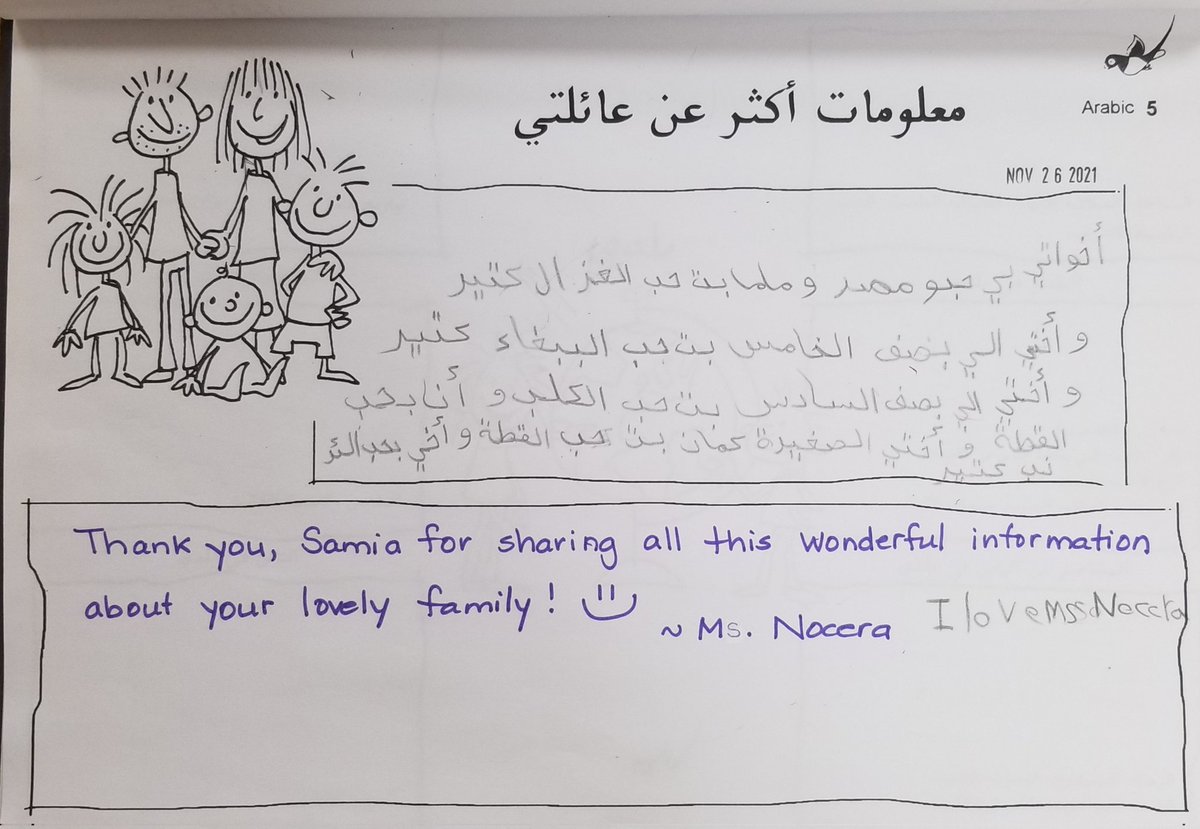 Arabic 5
معلومات أكثر عن عائلتي
NOV 26 2021
أخواتي بي حبو مصر و ماما بت حب الغزال كتير
و أختي الي بصف الخامس بت حب الببغاء كتير
و أختي الي بصف السادس بت حب الكلب و أنا بحب
القطة و أختي الصغيرة كمان بت حب القطة و أخي بحب الئر
نب كتير
Thank you, Samia for sharing all this wonderful information
about your lovely family!
~ Ms. Nocera
I love mss Nocera